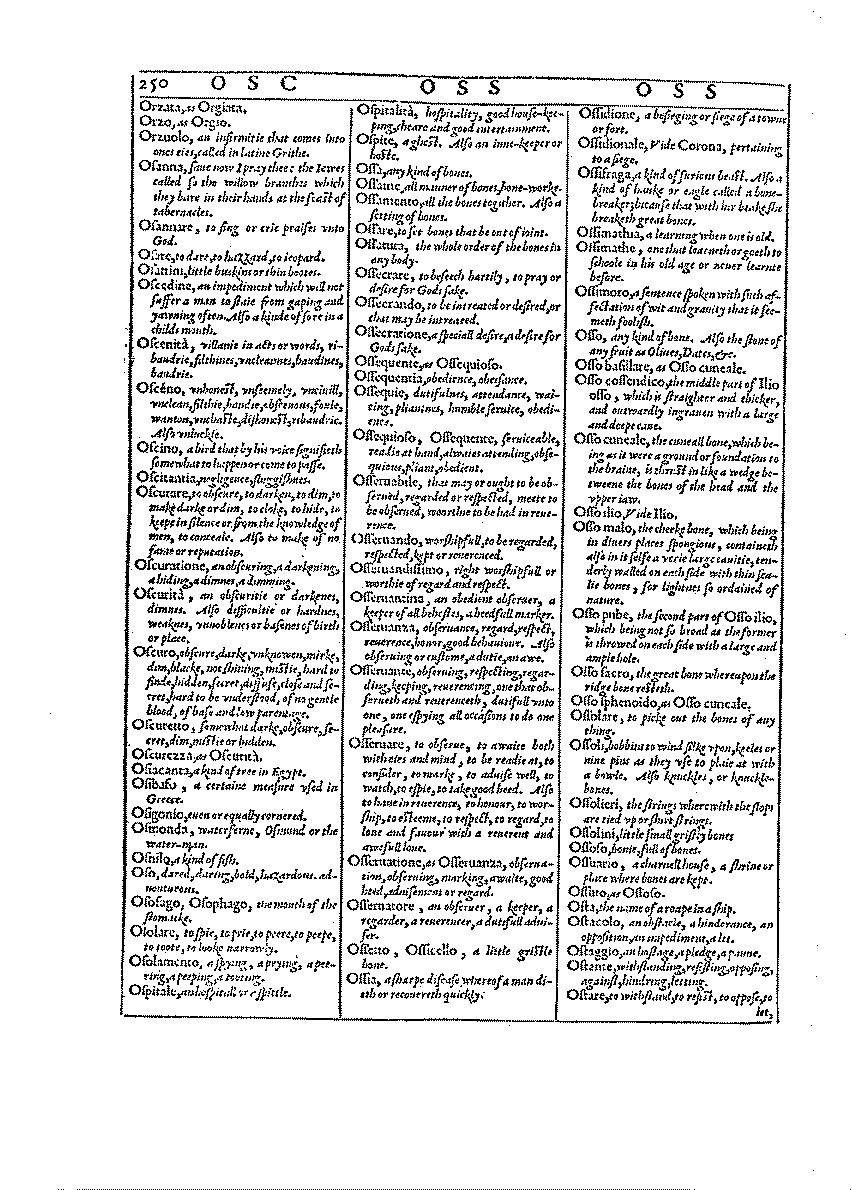 250 O S C O S S O S S
Orzata, as Orgiata.
Orzo, as Orgio.
Orzuolo, an infirmitie that comes into
ones eies, called in latine Grithe.
Osanna, saue now I pray thee: the Iewes
called so the willow branches which
they bare in their hands at the feast of
tabernacles.
Osannare, to sing or crie praises vnto
God.
Osare, to dare, to hazzard, to ieopard.
Osattini, little buskins or thin bootes.
Oscedine, an impediment which will not
suffer a man to staie from gaping and
yawning often. Also a kinde of sore in a
childs mouth.
Oscenità, villanie in acts or words, ri-
baudrie, filthines, vncleannes, baudines,
baudrie.
Oscéno, vnhonest, vnseemely, vnciuill,
vnclean, filthie, baudie, obscenous, foule,
wanton, vnchaste, dishonest, ribaudrie.
Also vnluckie.
Oscino, a bird that by his voice signifieth
somewhat to happen or come to passe.
Oscitantia, negligence, sluggishnes.
Oscurare, to obscure, to darken, to dim, to
make darke or dim, to cloke, to hide, to
keepe in silence or from the knowledge of
men, to conceale. Also to make of no
fame or reputation.
Oscuratione, an obscuring, a darkening,
a hiding, a dimnes, a dimming.
Oscurità, an obscuritie or darkenes,
dimnes. Also difficultie or hardnes,
weaknes, vnnoblenes or basenes of birth
or place.
Oscuro, obscure, darke, vnknowen, mirke,
dim, blacke, not shining, mistie, hard to
finde, hidden, secret, diffuse, close and se-
cret, hard to be vnderstood, of no gentle
blood, of base and low parentage.
Oscuretto, somewhat darke, obscure, se-
cret, dim, mistie or hidden.
Oscurezza, as Oscurità.
Osiacanta, a kind of tree in Egypt.
Osibafo, a certaine measure vsed in
Greece.
Osigonio, euen or equally cornered.
Osmonda, waterferne, Osmund or the
water-man.
Osnilo, a kind of fish.
Oso, dared, daring, bold, hazardous, ad-
uenturous.
Osofago, Osophago, the mouth of the
stomake.
Osolare, to spie, to prie, to peere, to peepe,
to toote, to looke narrowly.
Osolamento, a spying, a prying, a pee-
ring, a peeping, a tooting.
Ospitale, an hospitall or a spittle.
Ospitalità, hospitality, good house-kee-
ping, cheare and good intertainment.
Ospite, a ghest. Also an inne-keeper or
hoste.
Ossa, any kind of bones.
Ossame, all manner of bones, bone-worke.
Ossamento, all the bones together. Also a
setting of bones.
Ossare, to set bones that be out of ioint.
Ossatura, the whole order of the bones in
any body.
Ossecrare, to beseech hartily, to pray or
desire for Gods sake.
Ossecrando, to be intreated or desired, or
that may be intreated.
Ossecratione, a speciall desire, a desire for
Gods sake.
Ossequente, as Ossequioso.
Ossequentia, obedience, obeisance.
Ossequie, dutifulnes, attendance, wai-
ting, pliantnes, humble seruice, obedi-
ence.
Ossequioso, Ossequente, seruiceable,
readie at hand, alwaies attending, obse-
quious, pliant, obedient.
Osseruabile, that may or ought to be ob-
serued, regarded or respected, meete to
be obserued, woorthie to be had in reue-
rence.
Osseruando, worshipfull, to be regarded,
respected, kept or reuerenced.
Osseruandissimo, right worshipfull or
worthie of regard and respect.
Osseruanzina, an obedient obseruer, a
keeper of all behestes, a heedfull marker.
Osseruanza, obseruance, regard, respect,
reuerence, honor, good behauiour. Also
obseruing or custome, a dutie, an awe.
Osseruante, obseruing, respecting, regar-
ding, keeping, reuerencing, one that ob-
serueth and reuerenceth, dutifull vnto
one, one espying all occasions to do one
pleasure.
Osseruare, to obserue, to awaite both
with eies and mind, to be readie at, to
consider, to marke, to aduise well, to
watch, to espie, to take good heed. Also
to haue in reuerence, to honour, to wor-
ship, to esteeme, to respect, to regard, to
loue and fauour with a reuerent and
awefull loue.
Osseruatione, as Osseruanza, obserua-
tion, obseruing, marking, awaite, good
heed, aduisement or regard.
Osseruatore, an obseruer, a keeper, a
regarder, a reuerencer, a dutifull adui-
ser.
Ossetto, Ossicello, a little gristle
bone.
Ossia, a sharpe disease whereof a man di-
eth or recouereth quickly.
Ossidione, a besieging or siege of a towne
or fort.
Ossidionale, Vide Corona, pertaining
to a siege.
Ossifraga, a kind of furious beast. Also a
kind of hauke or eagle called a bone-
breaker, bicause that with hir beake she
breaketh great bones.
Ossimathia, a learning when one is old.
Ossimathe, one that learneth or goeth to
schoole in his old age or neuer learnte
before.
Ossimoro, a sentence spoken with such af-
fectation of wit and grauity that it see-
meth foolish.
Osso, any kind of bone. Also the stone of
any fruit as Oliues, Dates, &c.
Osso basilare, as Osso cuneale.
Osso cossendico, the middle part of Ilio
osso, which is straighter and thicker,
and outwardly ingrauen with a large
and deepe cane.
Osso cuneale, the cuneall bone, which be-
ing as it were a ground or foundation to
the braine, is thrust in like a wedge be-
tweene the bones of the head and the
vpper iaw.
Osso ilio, Vide Ilio.
Osso malo, the cheeke bone, which being
in diuers places spongious, containeth
also in it selfe a verie large cauitie, ten-
derly walled on each side with thin sca-
lie bones, for lightnes so ordained of
nature.
Osso pube, the second part of Osso ilio,
which being not so broad as the former
is throwed on each side with a large and
ample hole.
Osso sacro, the great bone whereupon the
ridge bone resteth.
Osso sphenoido, as Osso cuneale.
Ossolare, to picke out the bones of any
thing.
Ossoli, bobbins to wind silke vpon, keeles or
nine pins as they vse to plaie at with
a bowle. Also knuckles, or knuckle-
bones.
Ossolieri, the strings wherewith the slops
are tied vp or shirt strings.
Ossolini, little small gristly bones
Ossoso, bonie, full of bones.
Ossuario, a charnell house, a shrine or
place where bones are kept.
Ossuto, as Ossoso.
Osta, the name of a roape in a ship.
Ostacolo, an obstacle, a hinderance, an
opposition, an impediment, a let.
Ostaggio, an hostage, a pledge, a pawne.
Ostante, withstanding, resisting, opposing,
against, hindring, letting.
Ostare, to withstand, to resist, to oppose, to
let,